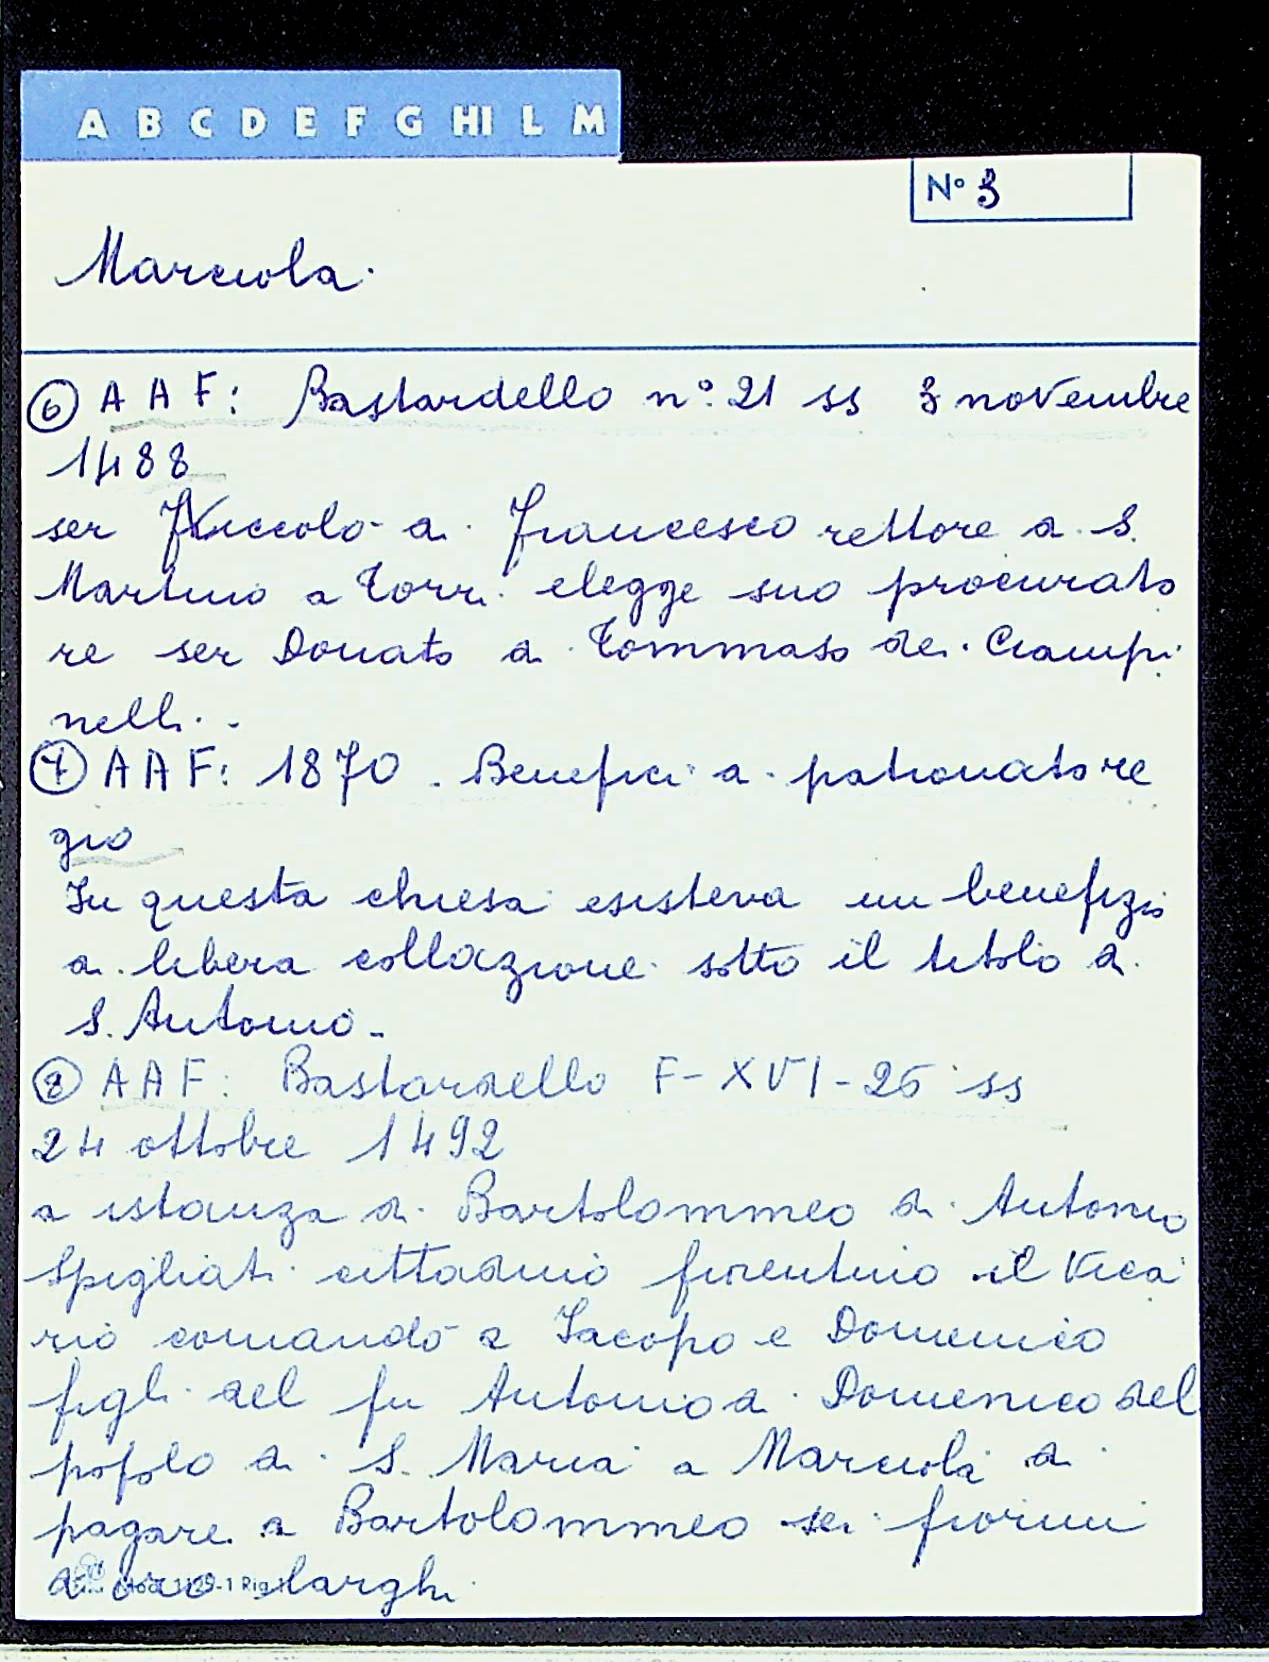 A B C D E F G HI L M
N° 3
Marciola.
⑥ AAF: Bastardello n° 21 ss 3 novembre
1488
ser Niccolò di Francesco rettore di S.
Martino a Torri elegge suo procurato
re ser Donato di Tommaso dei Ciampi
nelli. -
⑦ AAF: 1870. Benefici di patronato re
gio
In questa chiesa esisteva un benefizio
di libera collazione sotto il titolo di
S. Antonio -
⑧ AAF: Bastardello F-XVI-26 ss
24 ottobre 1492
a istanza di Bartolommeo di Antonio
Spigliati cittadino fiorentino il Vica
rio comandò a Iacopo e Domenico
figli del fu Antonio di Domenico del
popolo di S. Maria a Marciola di
pagare a Bartolommeo sei fiorini
d'oro larghi.